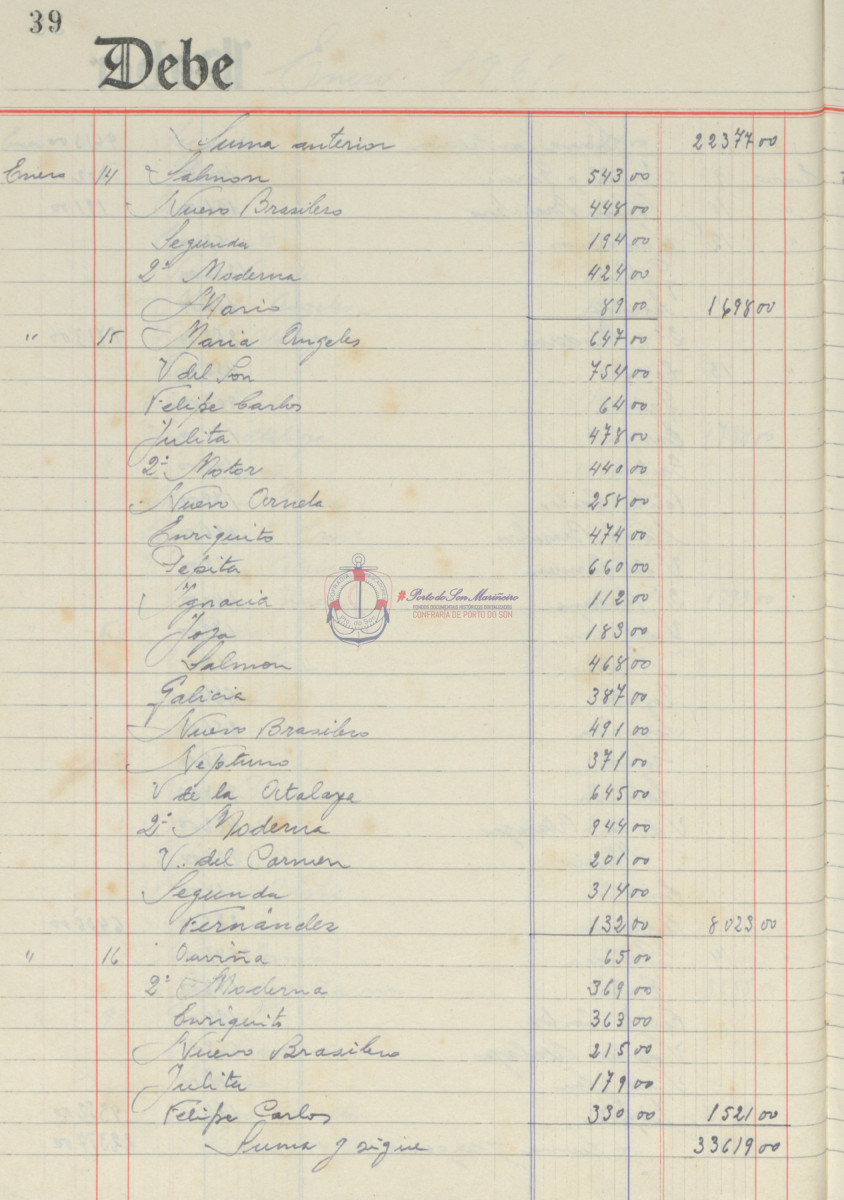 39
Debe
Suma anterior 22377 00
Enero 14 Salmon 543 00
Nuevo Brasilero 448 00
Segunda 194 00
2ª Moderna 424 00
Mario 89 00 1698 00
" 15 Maria Angeles 647 00
V del Son 754 00
Felipe Carlos 64 00
Julita 478 00
2ª Motor 440 00
Nuevo Arnela 258 00
Enriquito 474 00
Pepita 660 00
Ygnacia 112 00
Joya 183 00
Salmon 468 00
Galicia 387 00
Nuevo Brasilero 491 00
Neptuno 371 00
V de la Atalaya 645 00
2ª Moderna 944 00
V. del Carmen 201 00
Segunda 314 00
Fernández 132 00 8023 00
" 16 Ouviña 65 00
2ª Moderna 369 00
Enriquito 363 00
Nuevo Brasilero 215 00
Julita 179 00
Felipe Carlos 330 00 1521 00
Suma y sigue 33619 00
#PortodoSonMariñeiro
FONDOS DOCUMENTAIS HISTÓRICOS DIXITALIZADOS
CONFRARIA DE PORTO DO SON